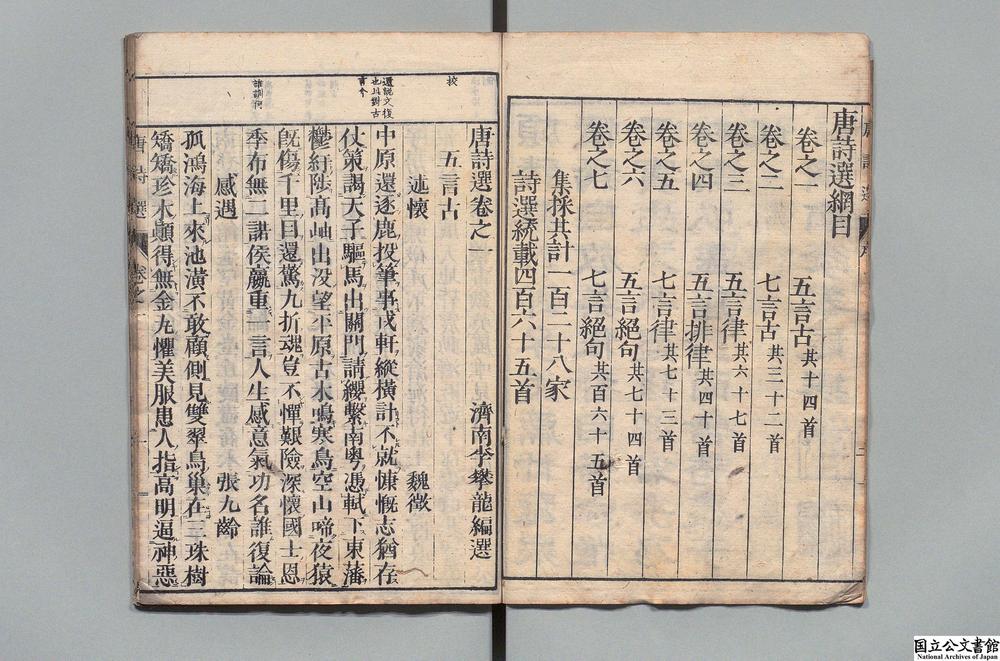 唐詩選綱目
卷之一 五言古 共十四首
卷之二 七言古 共三十二首
卷之三 五言律 共六十七首
卷之四 五言排律 共四十首
卷之五 七言律 共七十三首
卷之六 五言絕句 共七十四首
卷之七 七言絕句 共百六十五首
集採共計一百二十八家
詩選統載四百六十五首
唐詩選卷之一
濟南李攀龍編選
五言古
述懷 魏徵
中原還逐鹿投筆事戎軒縱橫計不就慷慨志猶存
仗策謁天子驅馬出關門請纓繫南粵憑軾下東藩
鬱紆陟高岫出没望平原古木鳴寒鳥空山啼夜猿
既傷千里目還驚九折魂豈不憚艱險深懷國士恩
季布無二諾侯嬴重一言人生感意氣功名誰復論
感遇 張九齡
孤鴻海上來池潢不敢顧側見雙翠鳥巢在三珠樹
矯矯珍木顛得無金丸懼美服患人指高明逼神惡
唐詩選 卷之一
国立公文書館
National Archives of Japan